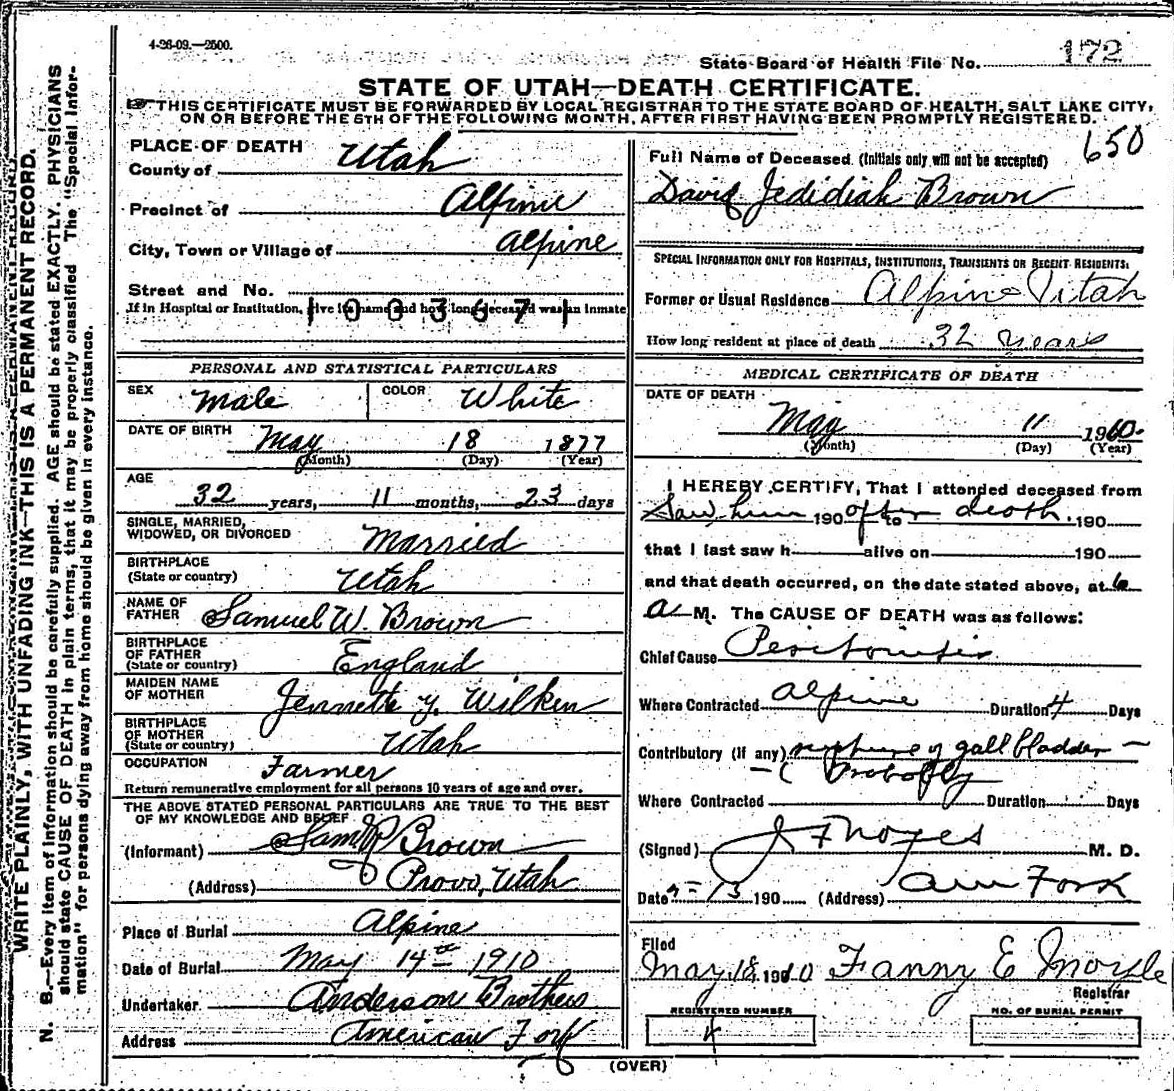 4-26-09.—2500.
State Board of Health File No. 172
STATE OF UTAH—DEATH CERTIFICATE.
THIS CERTIFICATE MUST BE FORWARDED BY LOCAL REGISTRAR TO THE STATE BOARD OF HEALTH, SALT LAKE CITY,
ON OR BEFORE THE 5TH OF THE FOLLOWING MONTH, AFTER FIRST HAVING BEEN PROMPTLY REGISTERED.
650
WRITE PLAINLY, WITH UNFADING INK—THIS IS A PERMANENT RECORD.
N. B.—Every item of information should be carefully supplied. AGE should be stated EXACTLY. PHYSICIANS
should state CAUSE OF DEATH in plain terms, that it may be properly classified. The "Special Infor-
mation" for persons dying away from home should be given in every instance.
PLACE OF DEATH
County of Utah
Precinct of Alpine
City, Town or Village of Alpine
Street and No.
If in Hospital or Institution, give its name and how long deceased was an inmate
1003671
PERSONAL AND STATISTICAL PARTICULARS
SEX Male COLOR White
DATE OF BIRTH May 18 1877
(Month) (Day) (Year)
AGE
32 years, 11 months, 23 days
SINGLE, MARRIED,
WIDOWED, OR DIVORCED Married
BIRTHPLACE
(State or country) Utah
NAME OF
FATHER Samuel W. Brown
BIRTHPLACE
OF FATHER
(State or country) England
MAIDEN NAME
OF MOTHER Jennette Y. Wilken
BIRTHPLACE
OF MOTHER
(State or country) Utah
OCCUPATION Farmer
Return remunerative employment for all persons 10 years of age and over.
THE ABOVE STATED PERSONAL PARTICULARS ARE TRUE TO THE BEST
OF MY KNOWLEDGE AND BELIEF
(Informant) Brown
(Address) Provo, Utah
Place of Burial Alpine
Date of Burial May 14th 1910
Undertaker Anderson Brothers
Address American Fork
Full Name of Deceased (Initials only will not be accepted)
David Jedidiah Brown
SPECIAL INFORMATION ONLY FOR HOSPITALS, INSTITUTIONS, TRANSIENTS OR RECENT RESIDENTS:
Former or Usual Residence Alpine Utah
How long resident at place of death 32 years
MEDICAL CERTIFICATE OF DEATH
DATE OF DEATH
May 11 1910
(Month) (Day) (Year)
I HEREBY CERTIFY, That I attended deceased from
Saw him 190 after to death. 190
that I last saw h alive on 190
and that death occurred, on the date stated above, at 6
a M. The CAUSE OF DEATH was as follows:
Chief Cause Peritonitis
Where Contracted Alpine Duration 4 Days
Contributory (if any) rupture of gall bladder —
— ( Probably
Where Contracted Duration Days
(Signed) J F Noyes M. D.
Date 5-13 190 (Address) Am Fork
Filed
May 18 1910 Fanny E
Registrar
REGISTERED NUMBER
4
NO. OF BURIAL PERMIT
(OVER)